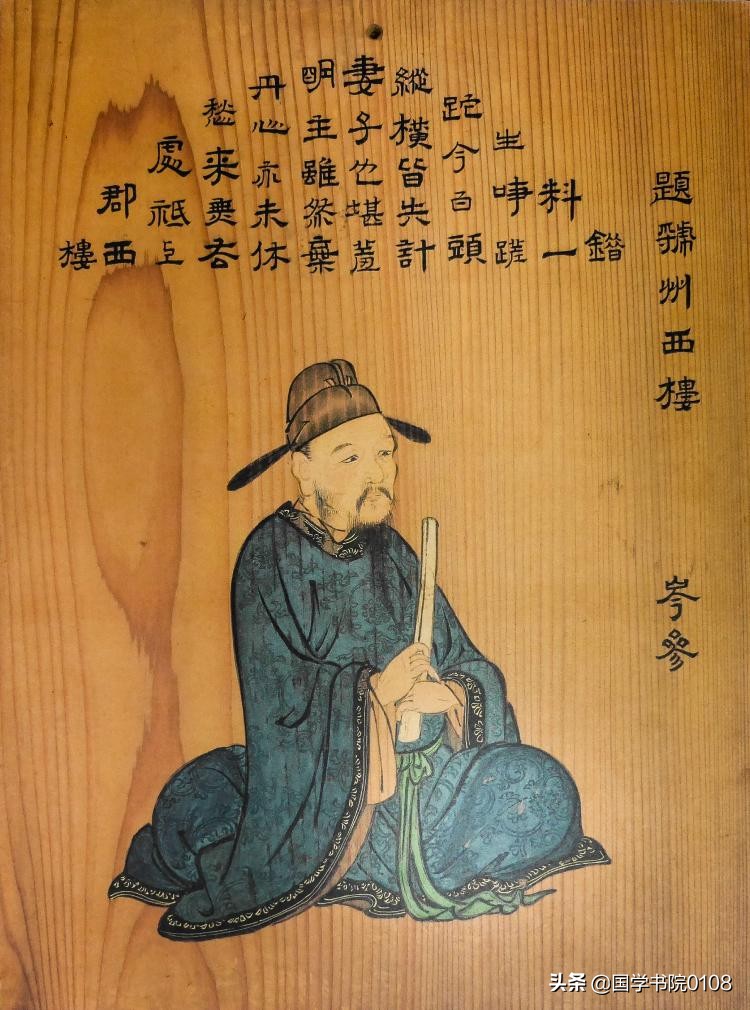 題虢州西樓
岑參
錯
料一
生事蹉
跎今白頭
縱橫皆失計
妻子也堪羞
明主雖然棄
丹心亦未休
愁来無去
處祗上
郡西
樓
头条 @国学书院0108